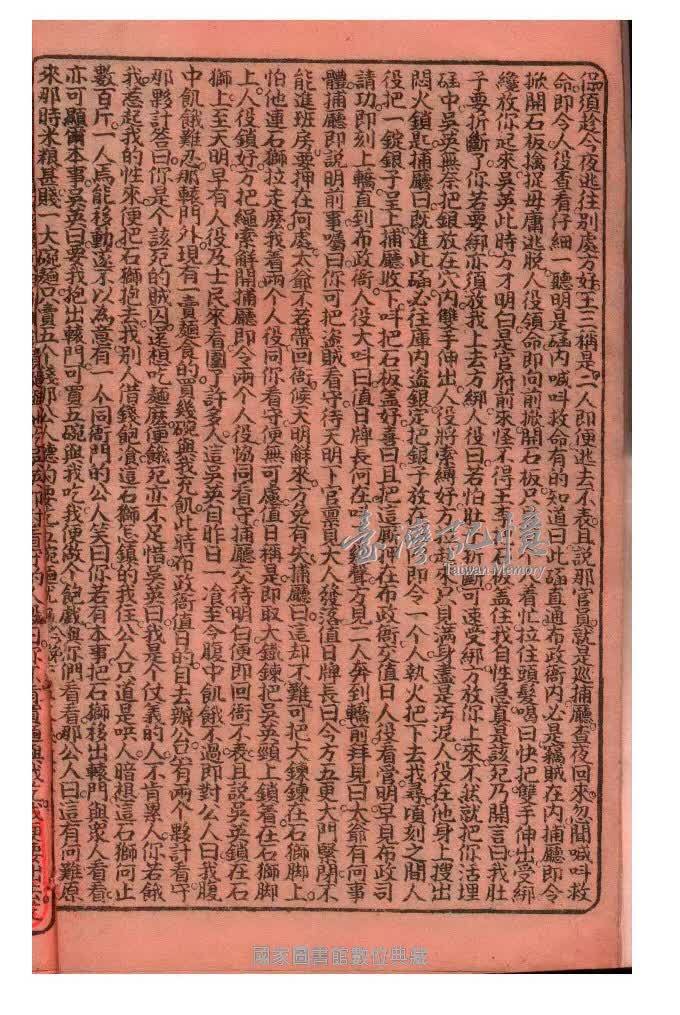 保須趁今夜逃往別處方好王三稱是二人即便逃去不表且說那官員就是巡捕廳查夜回來忽聞喊叫救
命即令人役查看仔細一聽明是𥑮內喊叫救命有的知道曰此𥑮直通布政衙內必是竊賊在內捕廳即令
掀開石板擒捉毋庸逃脫人役領命即向前掀開石板只人着忙拉住頭髮喝曰快把雙手伸出受綁
纔放你起來吳英此時方才明白是官府前來怪不得王李石板盖住我自性急真是該死乃開言曰我肚
子要折斷了你若要綁亦須放我上去方綁人役曰若怕肚折斷可速受綁方放你上來不然就把你活埋
𥑮中吳英無奈把銀放在穴內雙手伸出人役將索縛好方起來只見滿身盡是污泥人役在他身上搜出
悶火鎖匙捕廳曰既進此𥑮必往庫內盜銀定把銀子放在即令一個人執火把下去找尋頃刻之間人
役把一錠銀子呈上捕廳收下叫把石板盖好喜曰且把這厮押在布政衙交值日人役看管明早見布政司
請功即刻上轎直到布政衙人役大叫曰值日牌長何在聲方見二人奔到轎前拜見曰太爺有何事
體捕廳即說明前事囑曰你可把盜賊看守待天明下官稟見大人發落值日牌長曰今方五更大門緊閉不
能進班房要押在何處太爺不若帶回衙候天明解來方免有失捕廳曰這却不難可把大鍊鍊在石獅脚上
怕他連石獅拉走麽我着兩個人役同你看守便無可慮值日稱是即取大鐵鍊把吳英頸上鎖着在石獅脚
上人役鎖好方把繩索解開捕廳即令兩個人役協同看守捕廳不待明白便即回衙不表且說吳英鎖在石
獅上至天明早有人役及士民來看圍了許多人這吳英自昨日一飡至今腹中飢餓不過即對公人曰我腹
中飢餓難忍那轅門外現有一賣麵食的買幾碗與我充飢此時布政衙值日的自去辦公只有兩個夥計看守
那夥計答曰你是個該死的賊囚還想吃麵麽便餓死亦不足惜吳英曰我是個仗義的人不肯累人你若餓
我惹起我的性來便把石獅抱去我別人借錢飽飡這石獅怎鎮的我住公人只道是哄人暗想這石獅何止
數百斤一人焉能移動遂不以為意有一個同衙門的公人笑曰你若有本事把石獅移出轅門與衆人看看
亦可顯你本事吳英曰要我抱出轅門可買五碗與我吃我便做個飽戲與你們看看那公人曰這有何難原
來那時米粮甚賤一大碗麵只賣五個錢那公人聽